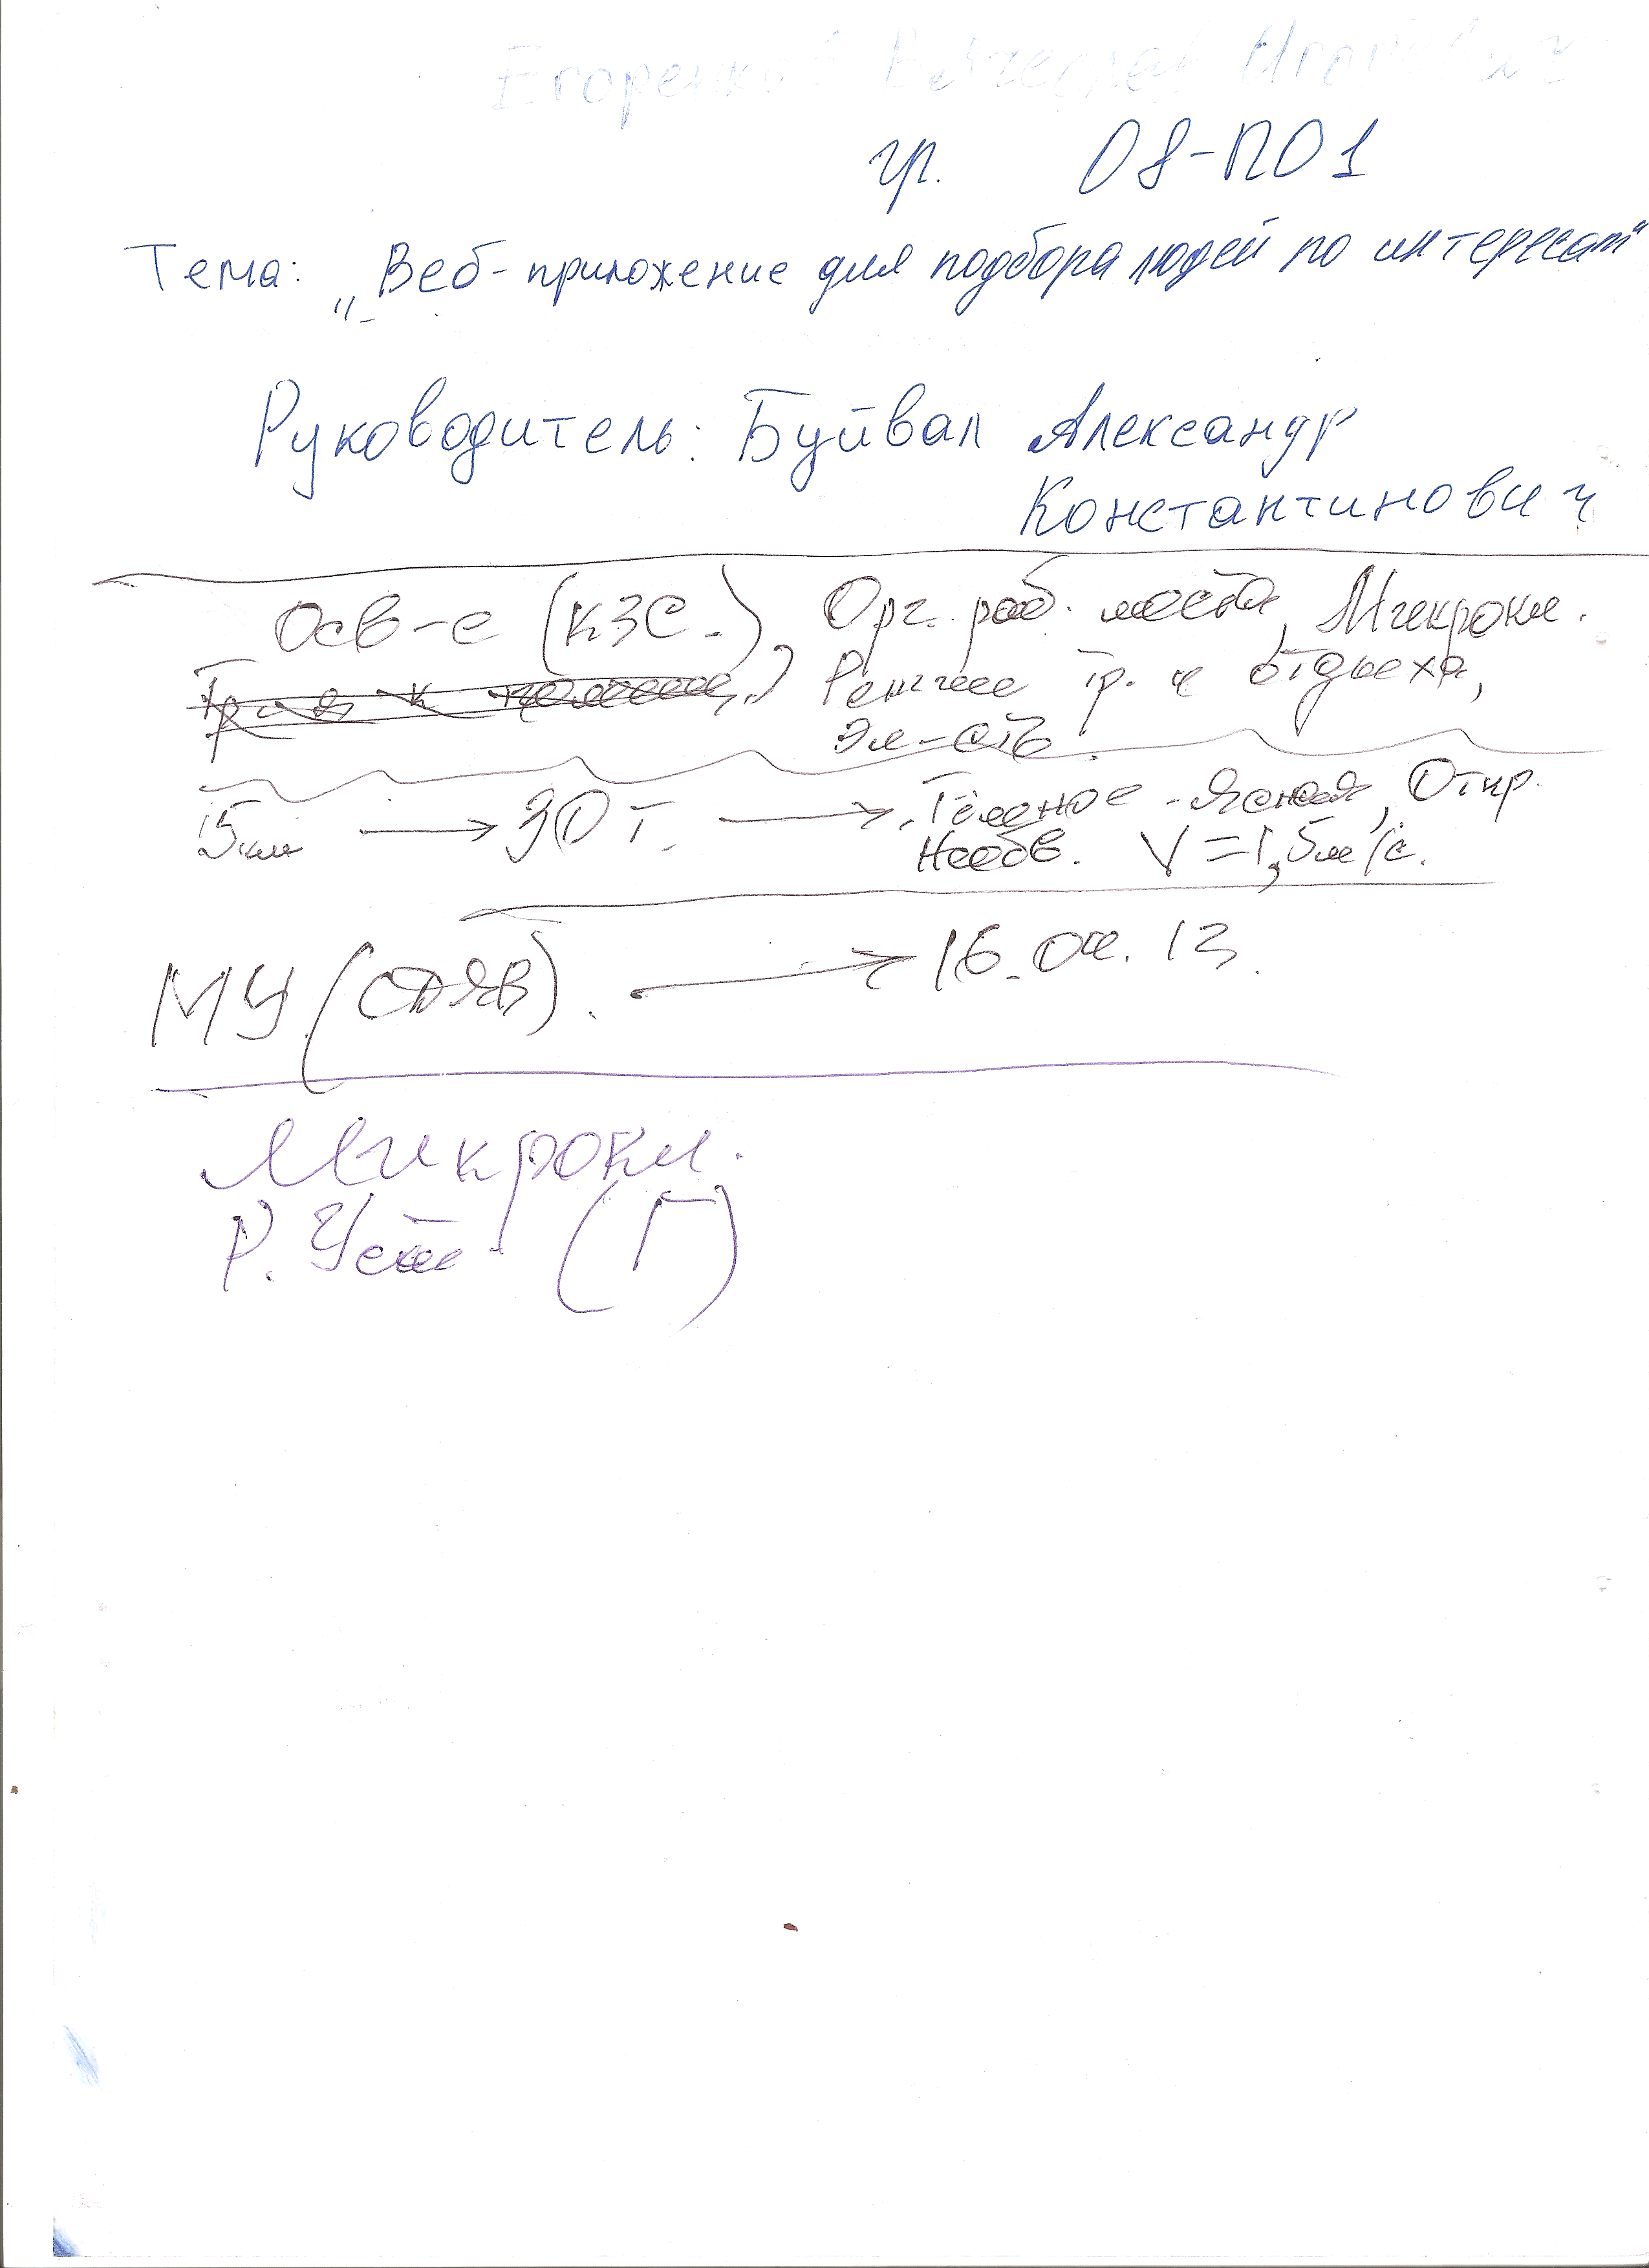 Егоренков Вячеслав Игоревич
гр. 08-ПО1
Тема: „Веб-приложение для подбора людей по интересам"
Руководитель: Буйвал Александр
Константинович
Осв-е (КЗС.), Орг. раб. места, Микрокл.
Режим тр. и отдыха,
Эл-сть.
5км → 30 т. → Темное - ясная, Откр.
Необв. V=1,5м/с.
МУ (СДЯВ). → 16.04.13.
Микрокл.
Р. Уст. (Г)